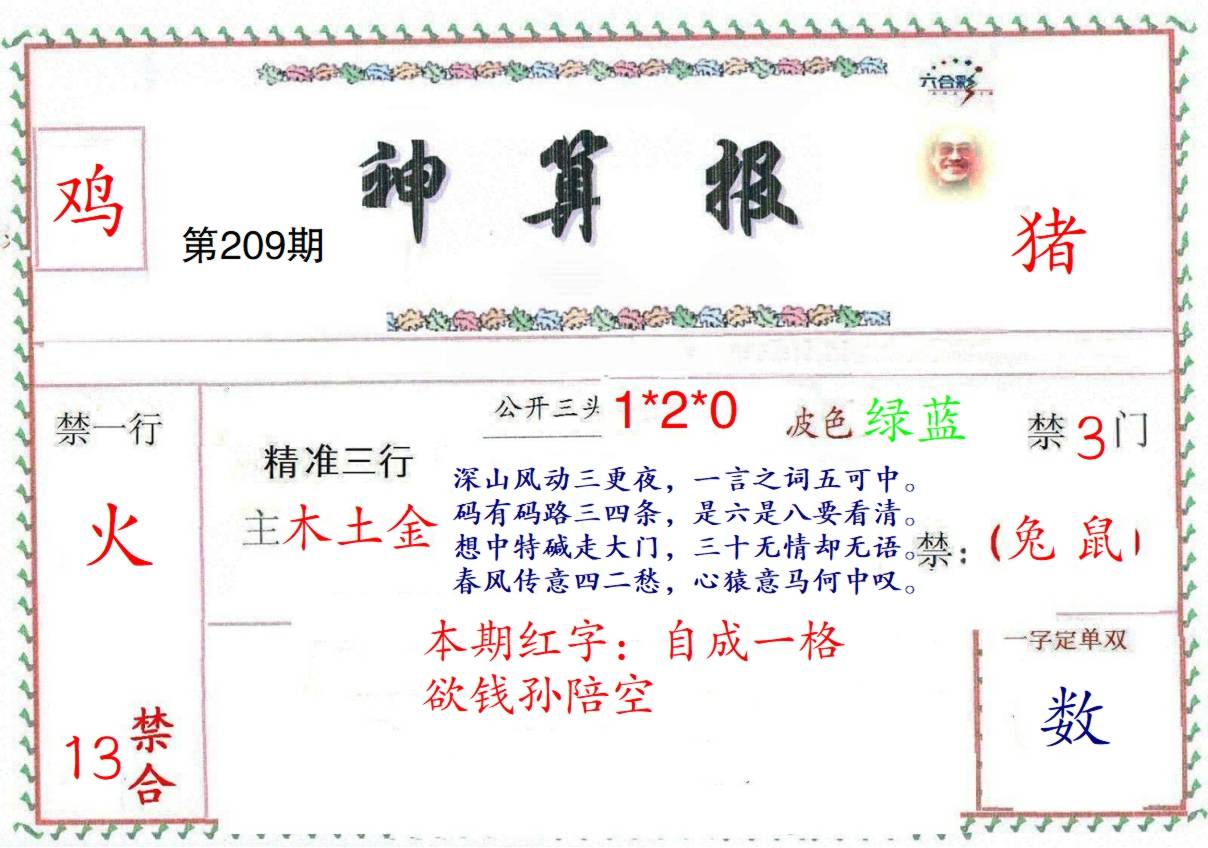 六合彩
神算报
鸡
第209期
猪
禁一行
火
13禁合
精准三行
主木土金
公开三头 1*2*0
波色绿蓝
禁3门
深山风动三更夜，一言之词五可中。
码有码路三四条，是六是八要看清。
想中特碱走大门，三十无情却无语。
春风传意四二愁，心猿意马何中叹。
禁：（兔 鼠）
本期红字：自成一格
欲钱孙陪空
一字定单双
数